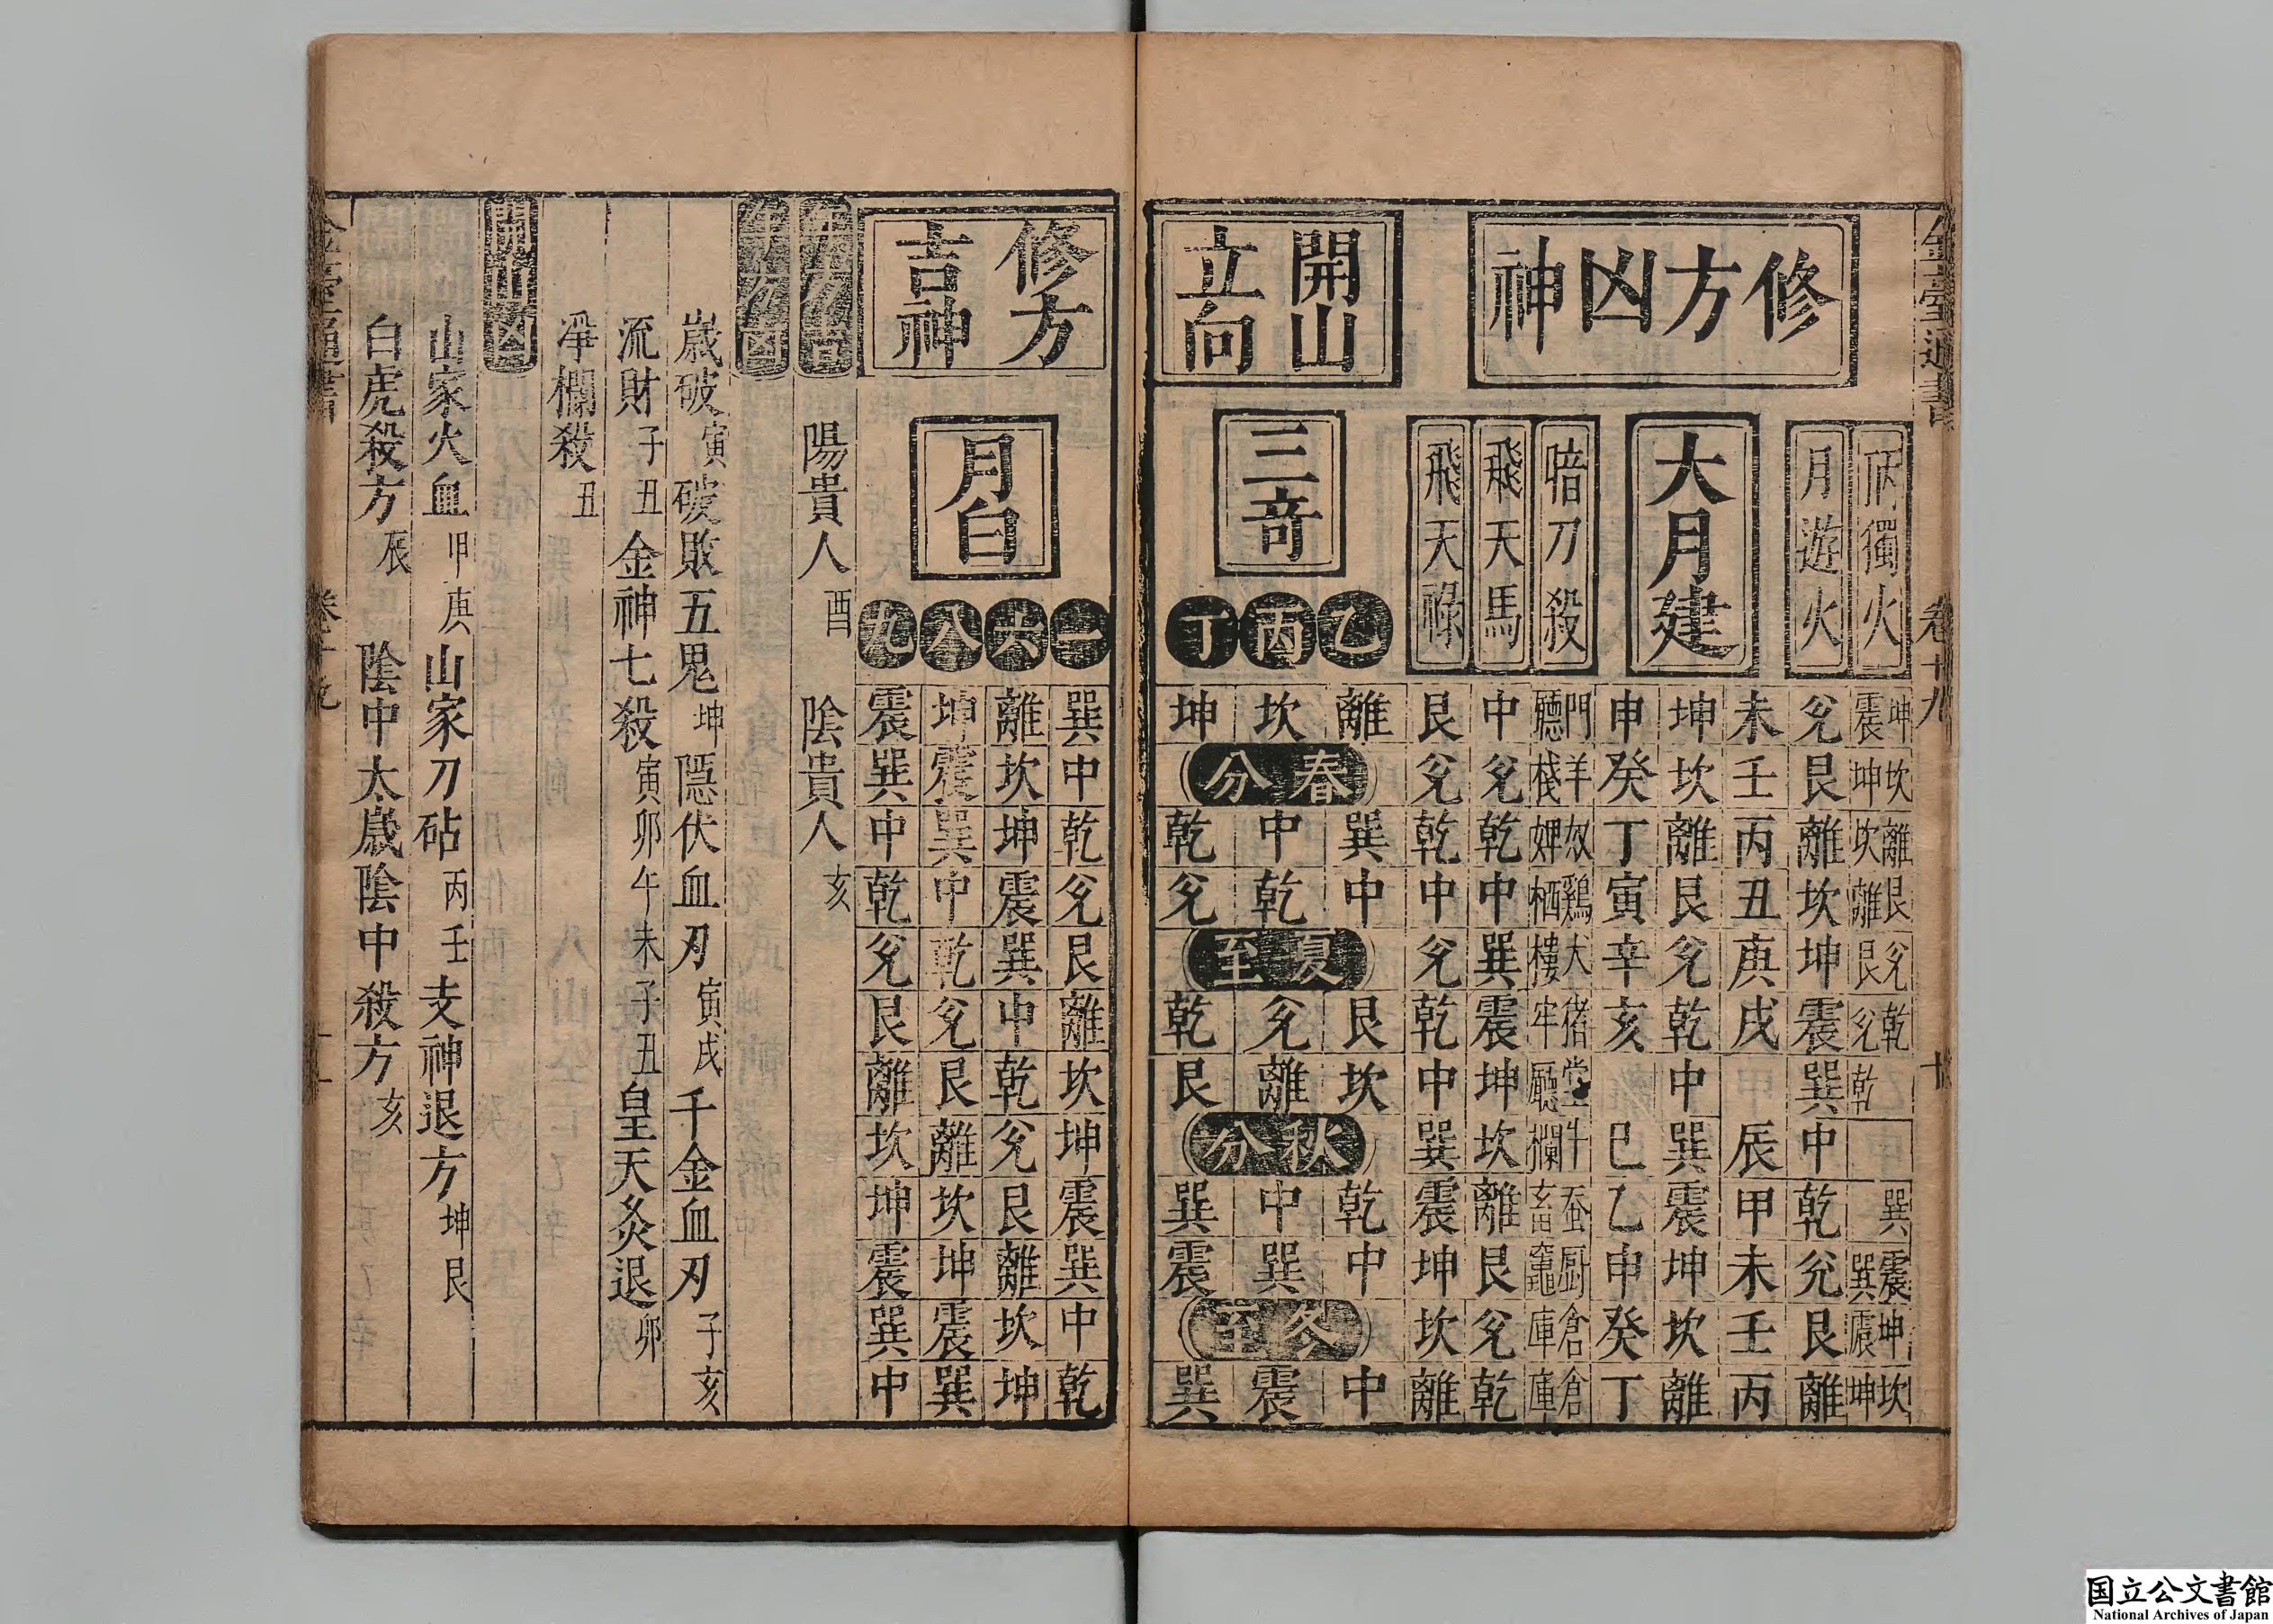 修方凶神
丙獨火
坤震
坎坤
離坎
艮離
兌艮
乾兌
乾
巽
震巽
坤震
坎坤
月遊火
兌艮離坎坤震巽中乾兌艮離
大月建
未壬丙丑庚戌甲辰甲未壬丙
坤坎離艮兌乾中巽震坤坎離
申癸丁寅辛亥巳乙申癸丁
暗刀殺
門廳
羊棧
奴婢
鷄栖
大樓
猪牢
堂廳
牛欄
蚕畜
厨竈
倉庫
倉庫
飛天馬
中兌乾中巽震坤坎離艮兌乾
飛天祿
艮兌乾中兌乾中巽震坤坎離
開山
立向
三竒
乙丙丁
離坎坤
春分
巽中乾
中乾兌
夏至
艮兌乾
坎離艮
秋分
乾中巽
中巽震
冬至
中震巽
修方
吉神
月白
一
巽中乾兌艮離坎坤震巽中乾
六
離坎坤震巽中乾兌艮離坎坤
八
坤震巽中乾兌艮離坎坤震巽
九
震巽中乾兌艮離坎坤震巽中
年方吉
陽貴人 酉 陰貴人 亥
年方凶
歲破 寅 破敗五鬼 坤 隱伏血刃 寅戌 千金血刃 子亥
流財 子丑 金神七殺 寅卯午未子丑 皇天灸退 卯
淨欄殺 丑
開山凶
山家火血 甲庚 山家刀砧 丙壬 支神退方 坤艮
白虎殺方 辰 陰中太歲陰中殺方 亥
国立公文書館
National Archives of Japan